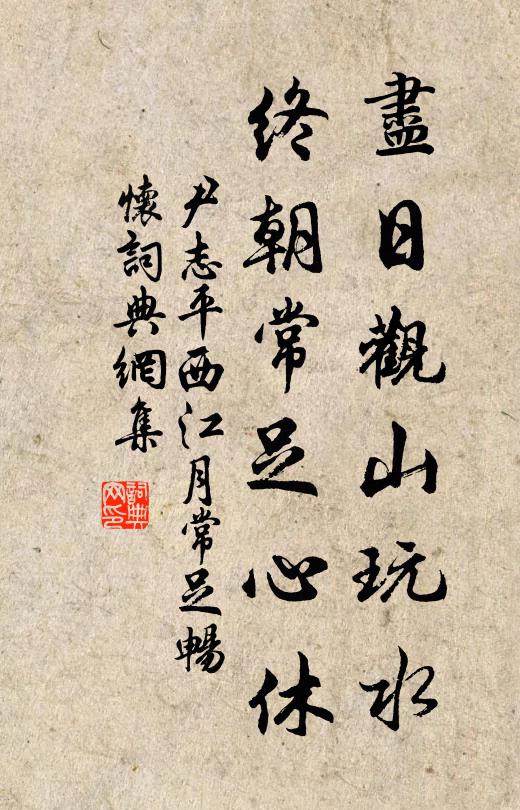 盡日觀山玩水
終朝常足心休
尹志平西江月常足暢
懷詞典網集
詞典
网印